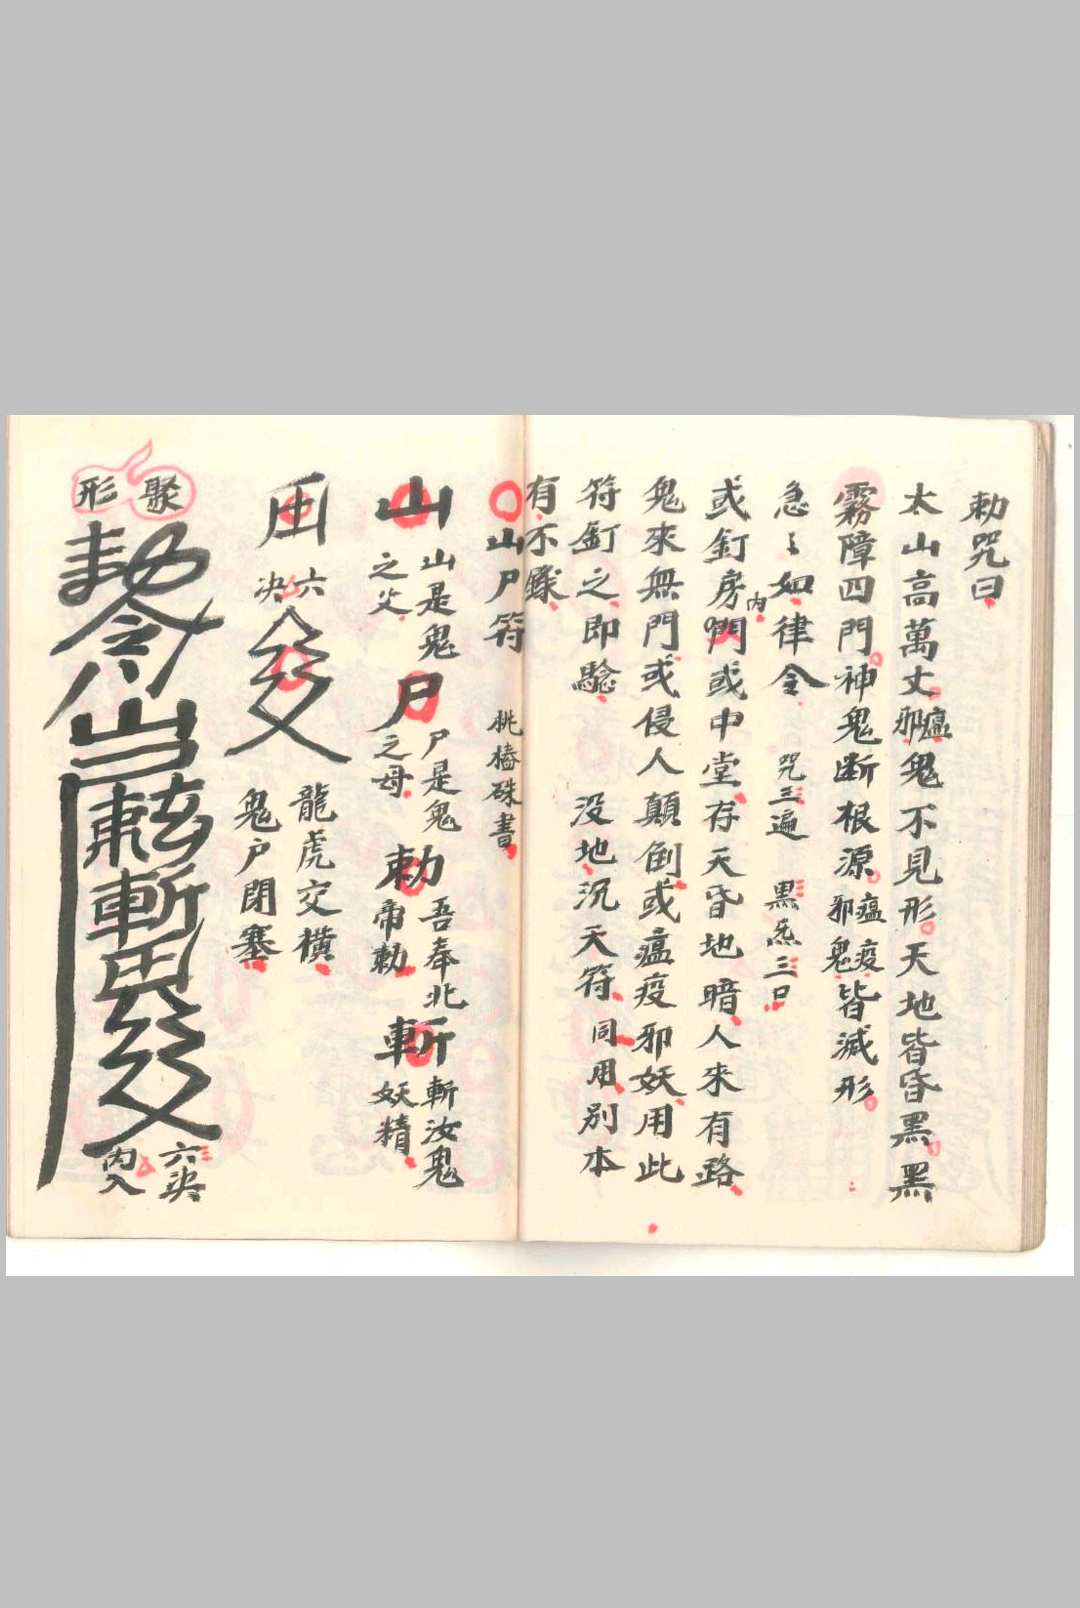 勅咒曰
太山高萬丈瘟邪鬼不見形天地皆昏黑黑
霧障四門神鬼断根源瘟疫邪鬼皆滅形
急〻如律令 咒三遍 黑炁三口
或釘房内門或中堂存天昏地暗人來有路
鬼來無門或侵人顛倒或瘟疫邪妖用此
符釘之即驗 没地沉天符同用别本
有不錄
山尸符 桃樁硃書
山 山是鬼之父 尸 尸是鬼之母 勅 吾奉北帝勅 斬 斬汝鬼妖精
六决 龍虎交横鬼户閉塞
聚形
勅令
斬
六决内入